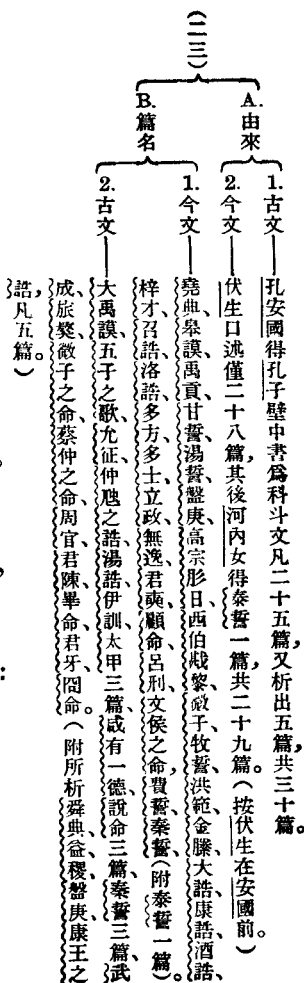 (二三)
A.由來
1.古文——孔安國得孔子壁中書爲科斗文凡二十五篇,又析出五篇,共三十篇。
2.今文——伏生口述僅二十八篇,其後河內女得泰誓一篇,共二十九篇。(按伏生在安國前。)
B.篇名
1.今文——堯典、皋謨、禹貢、甘誓、湯誓、盤庚、高宗肜日、西伯戡黎、微子、牧誓、洪範、金縢、大誥、康誥、酒誥、
梓才、召誥、洛誥、多方、多士、立政、無逸、君奭、顧命、呂刑、文侯之命、費誓、秦誓、(附泰誓一篇)。
2.古文——大禹謨、五子之歌、允征、仲虺之誥、湯誥、伊訓、太甲三篇、咸有一德、說命三篇、泰誓三篇、武
成、旅獒、微子之命、蔡仲之命、周官、君陳、畢命、君牙、冏命。(附所析舜典、益稷、盤庚、康王之
誥,凡五篇。)